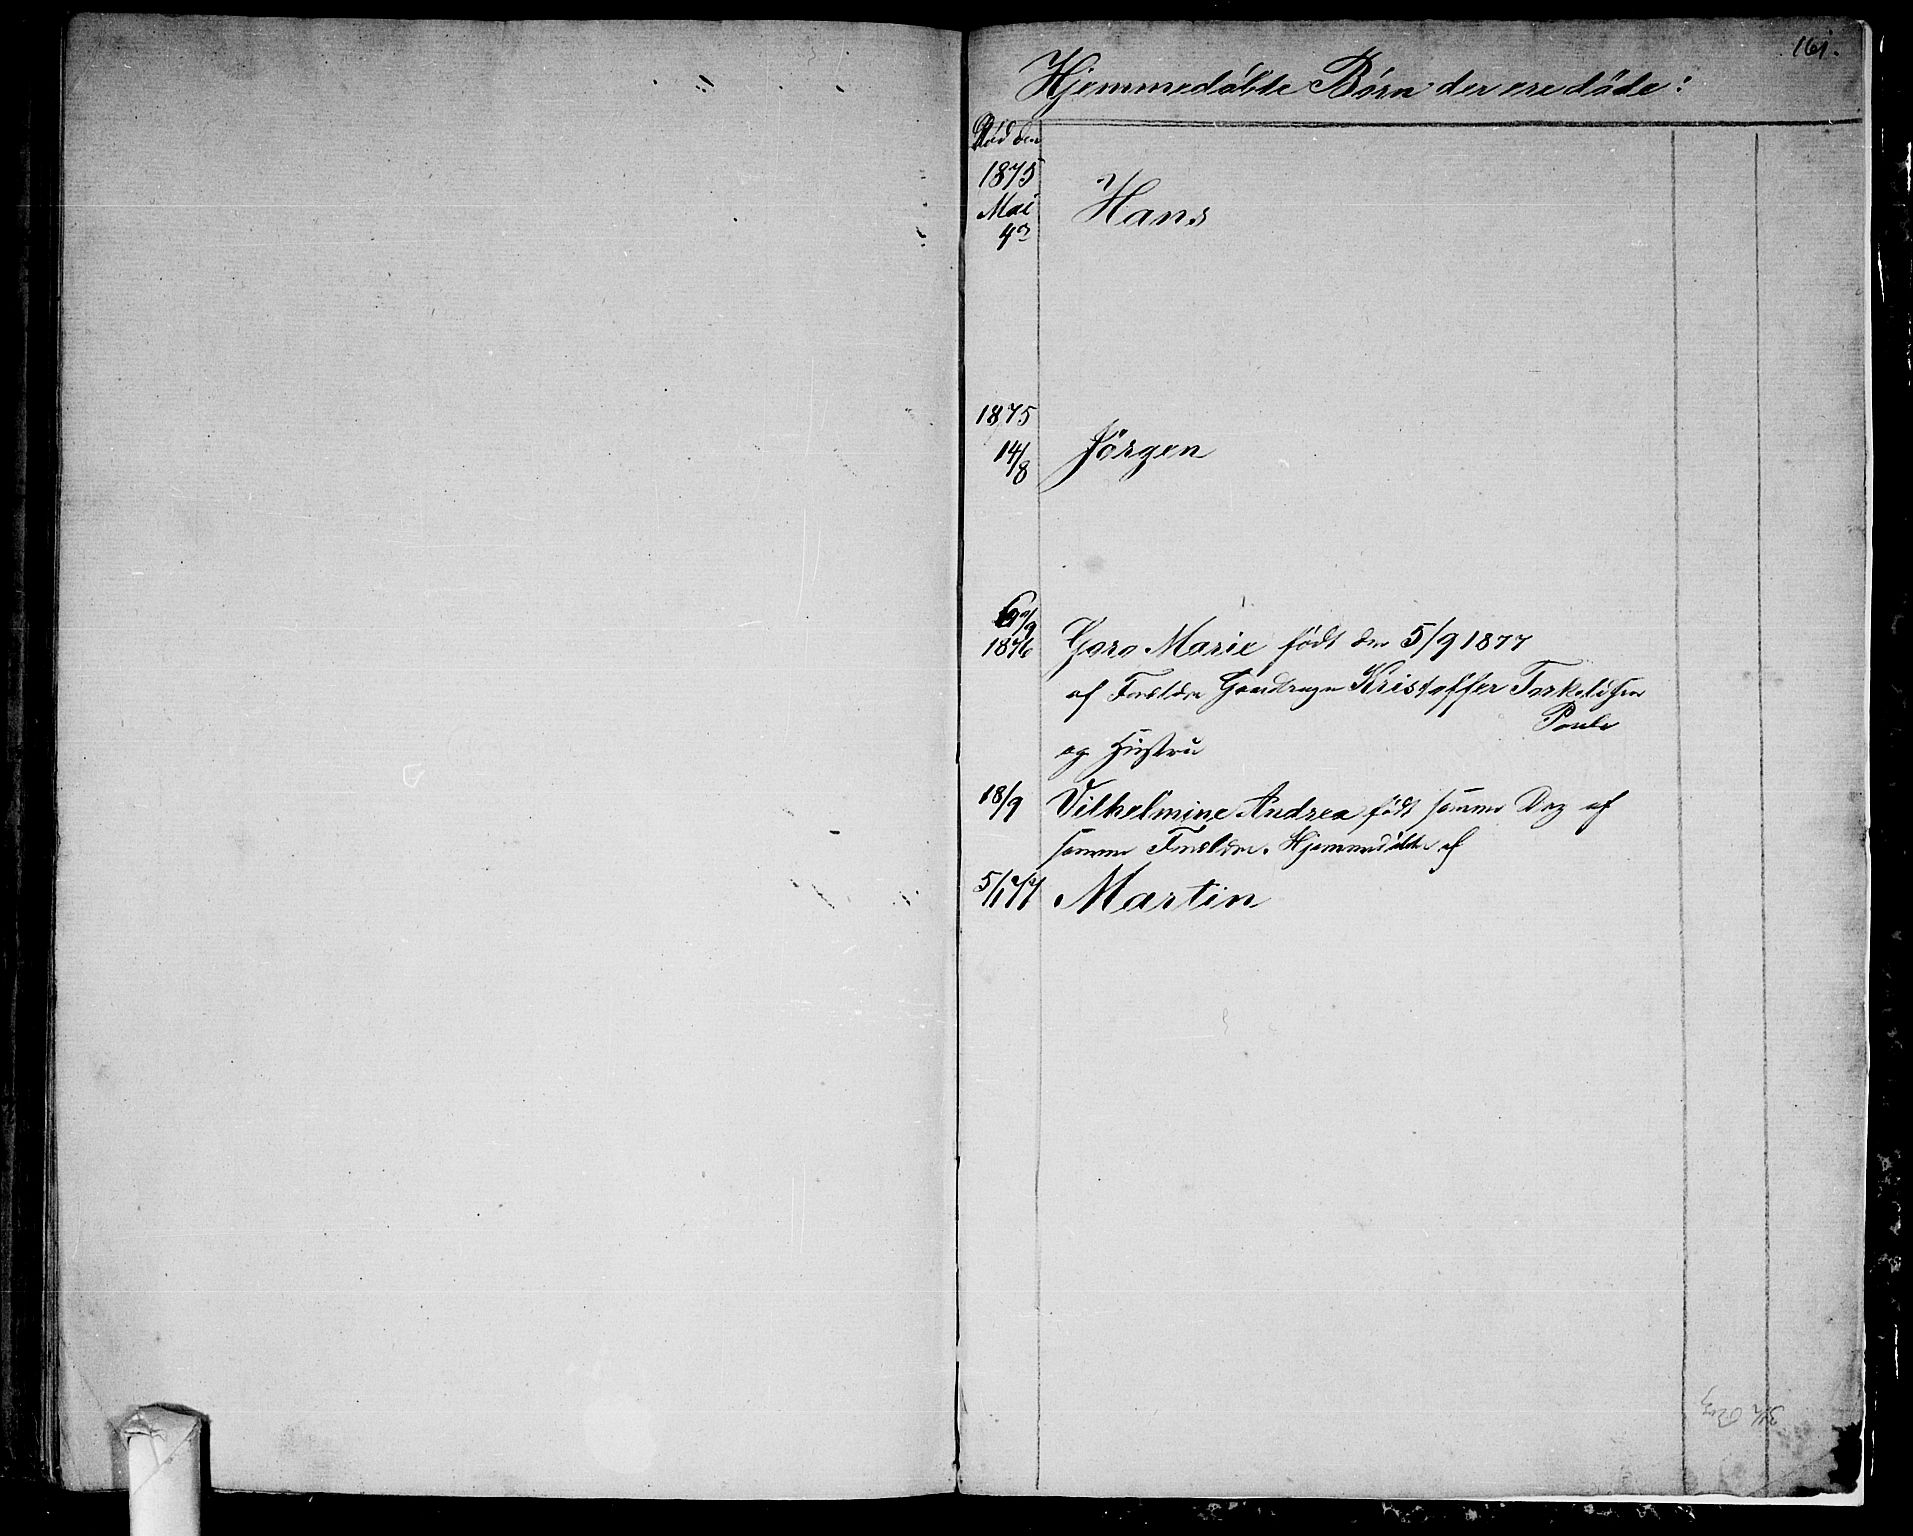 161.
Hjemmedøbte Børn der ere døde:
Død den
1875
Mai
4de
Hans
1875
14/8
Jörgen
/9
1876
Marie født den 5/9 1877
af Forældre Gaardmager Kristoffer Torkeldsen
og Hustru
18/9 Vilhelmine Andrea født samme Dag af
samme Forældre. Hjemmedøbte af
5/1 77 Martin